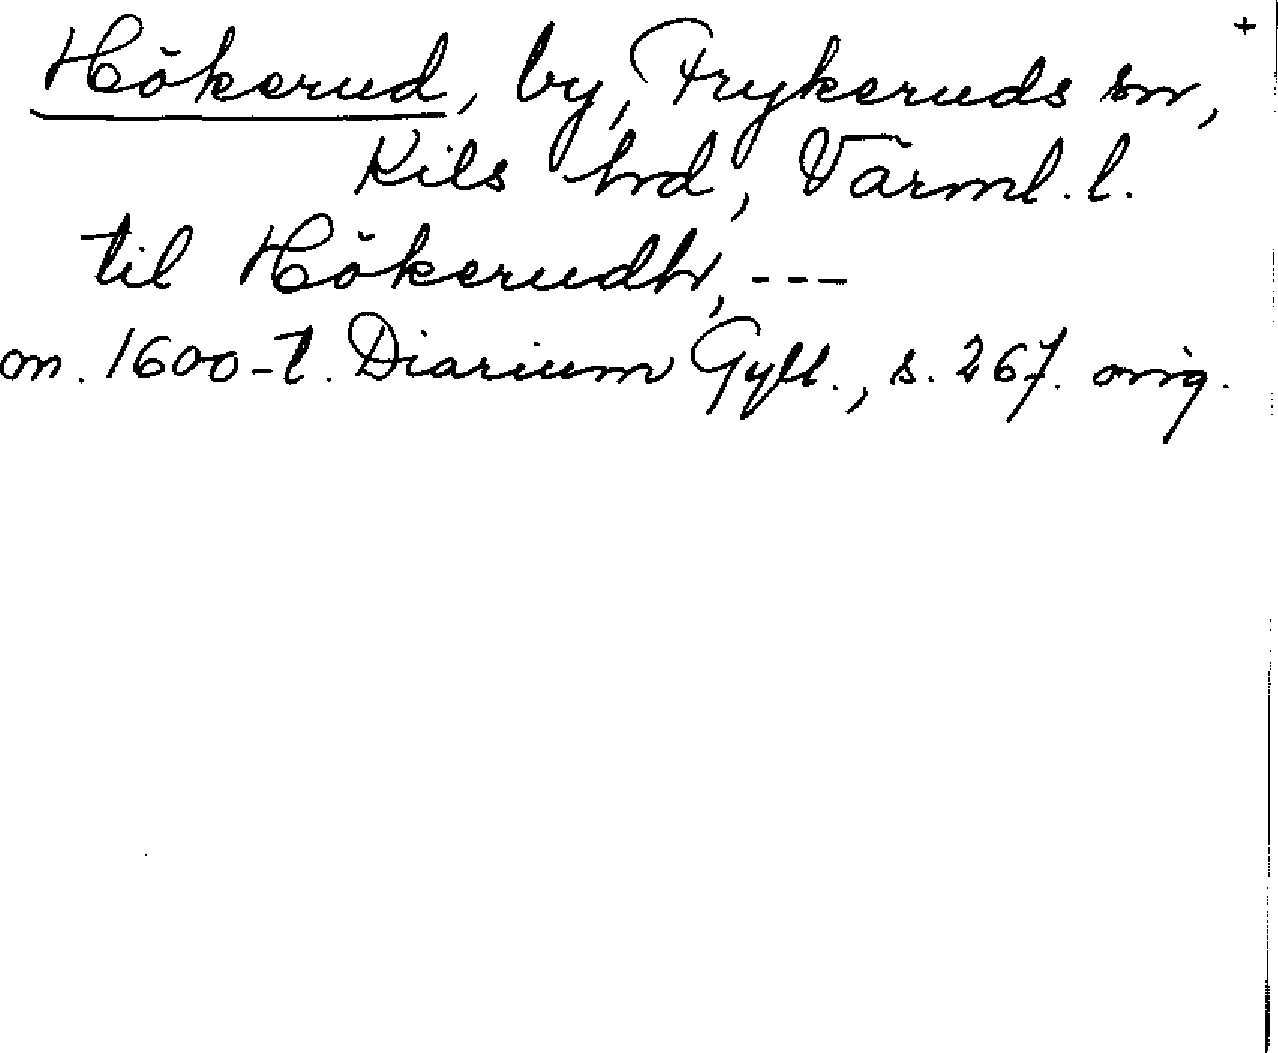 +
Hökerud, by, Frykeruds sn,
Kils hrd, Värml. l.
til Hökerudh, ---
m. 1600-t. Diarium Gyll., s. 267. orig.